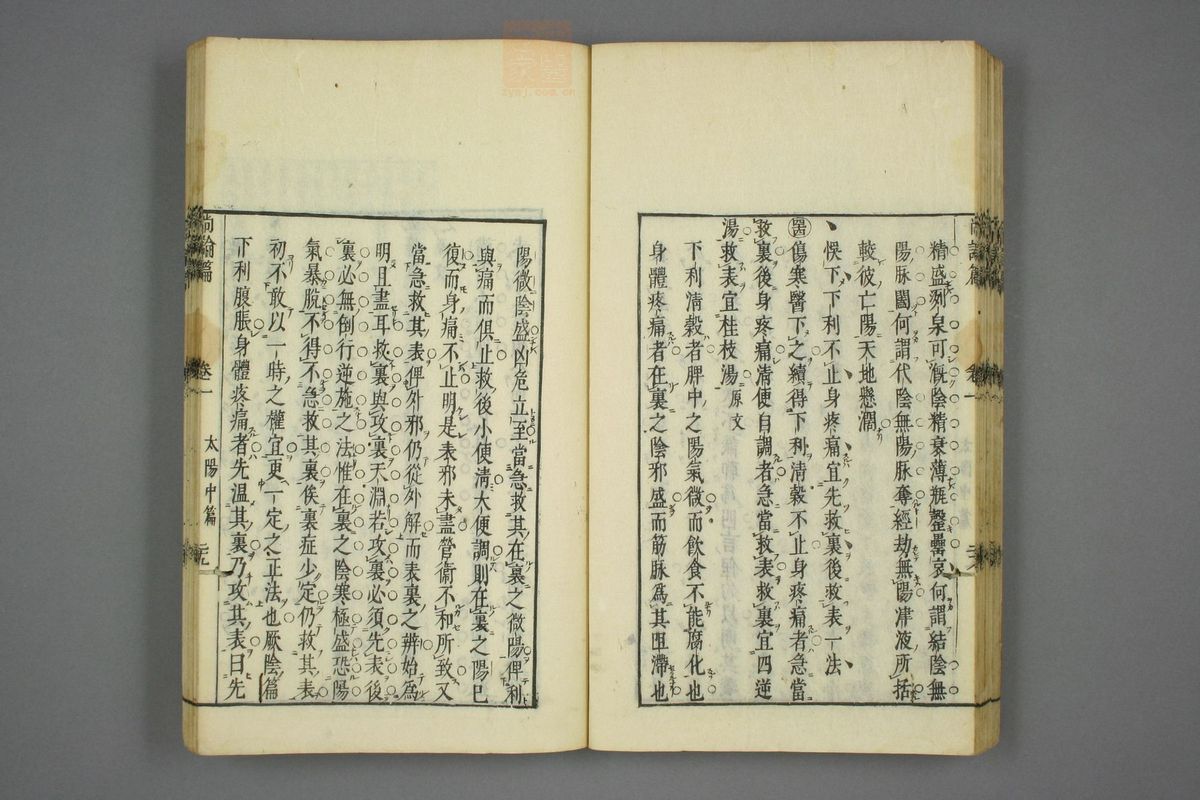 精盛洌泉可漑陰精衰薄瓶罄罍哀何謂結陰無
陽脉闔何謂代陰無陽脉奪經劫無陽津液所括
較彼亡陽天地懸濶
悞下下利不止身疼痛宜先救裏後救表一法
醫傷寒醫下之續得下利清穀不止身疼痛者急當
救裏後身疼痛清便自調者急當救表救裏宜四逆
湯救表宜桂枝湯原文
下利清穀者脾中之陽氣微而飲食不能腐化也
身體疼痛者在裏之陰邪盛而筋脉爲其阻滯也
陽微陰盛凶危立至當急救其在裏之微陽俾利
與痛而俱止救後小便淸大便調則在裏之陽已
復而身痛不止明是表邪未盡營衞不和所致又
當急救其表俾外邪仍從外解而表裏之辨始爲
明且盡耳救裏與攻裏天淵若攻裏必須先表後
裏必無倒行逆施之法惟在裏之陰寒極盛恐陽
氣暴脫不得不急救其裏俟裏症少定仍救其表
初不敢以一時之權宜更一定之正法也厥陰篇
下利腹脹身體疼痛者先温其裏乃攻其表曰先
尚論篇 卷一 太陽中篇
zysj.com.cn